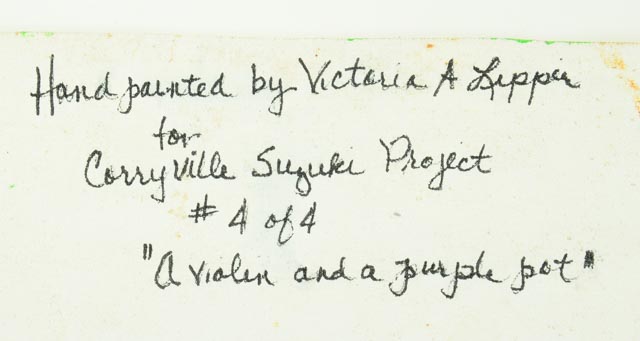 Hand painted by Victoria A Lipper
for
Corryville Suzuki Project
# 4 of 4
"A violin and a purple pot"